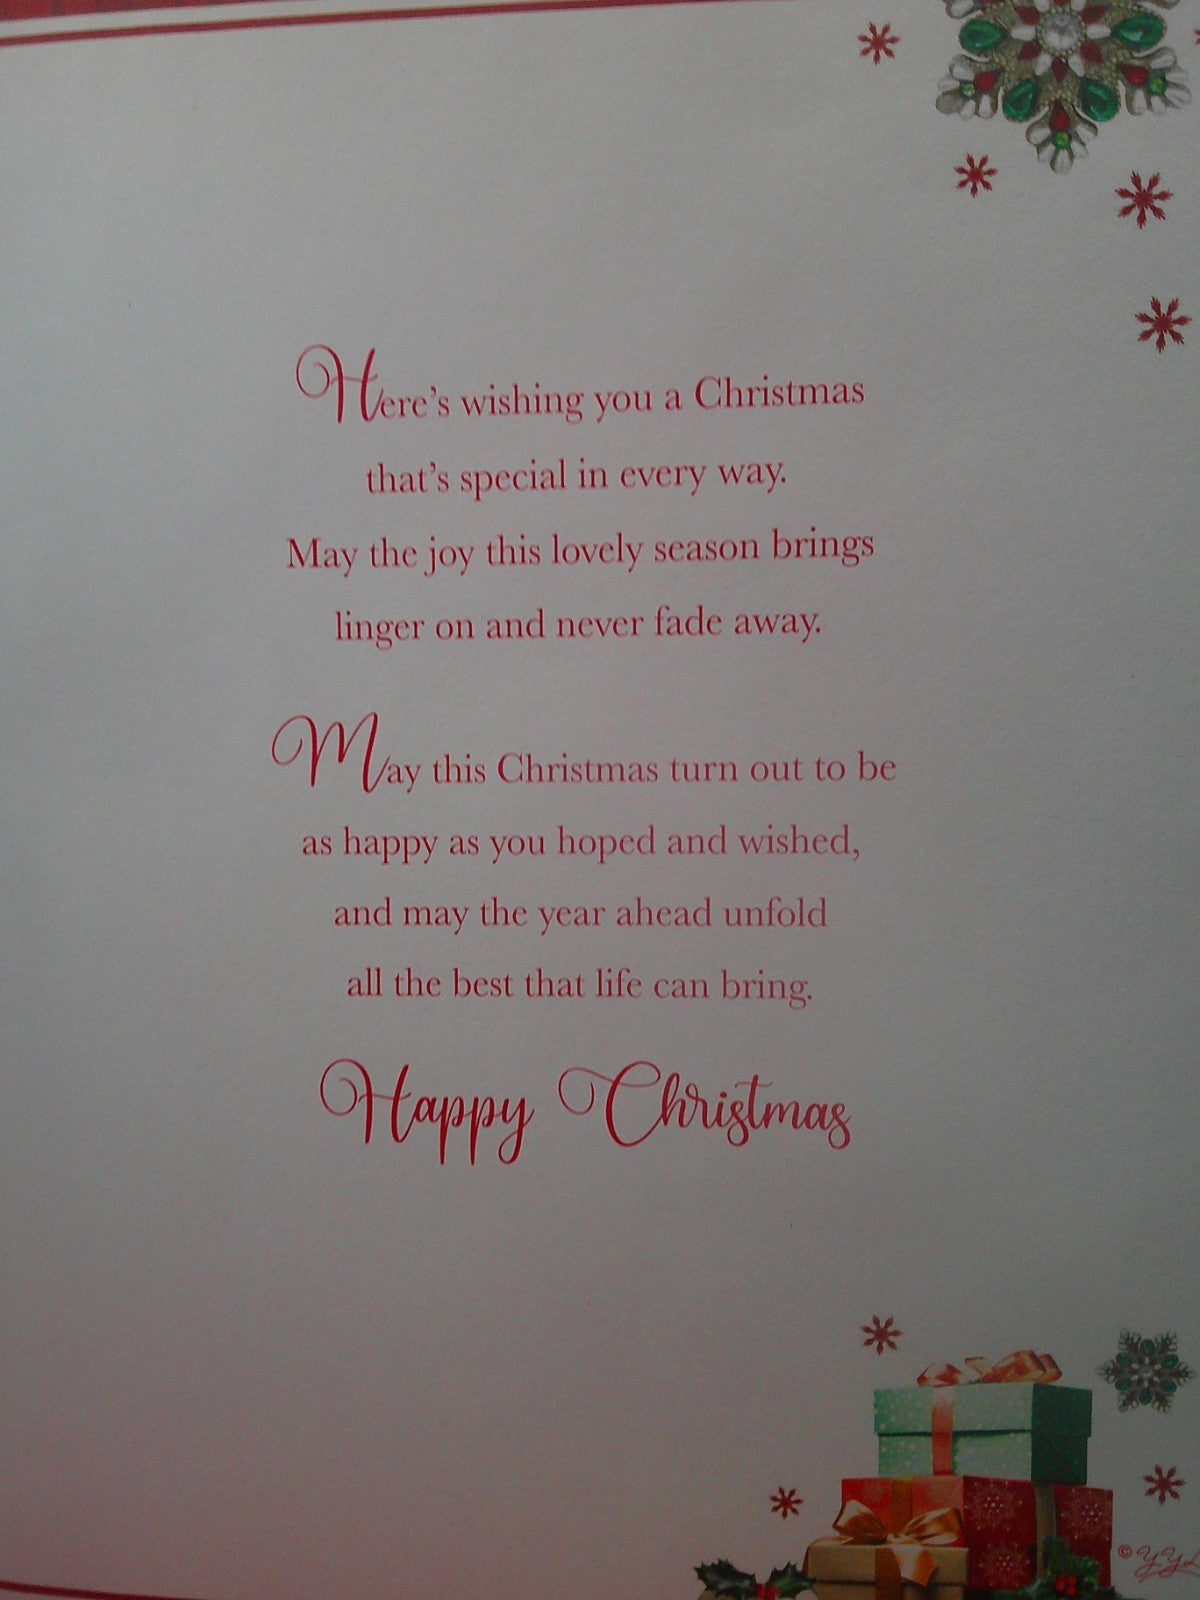 Here's wishing you a Christmas
that's special in every way.
May the joy this lovely season brings
linger on and never fade away.
May this Christmas turn out to be
as happy as you hoped and wished,
and may the year ahead unfold
all the best that life can bring.
Happy Christmas